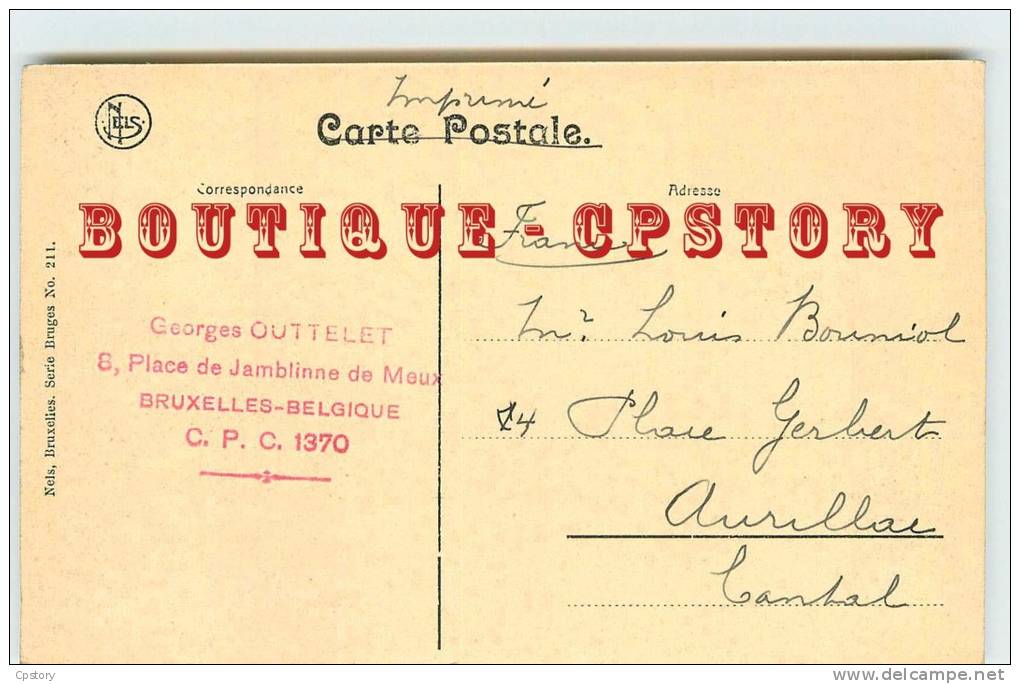 Imprimé
NELS
Carte Postale.
Correspondance
Adresse
BOUTIQUE - CPSTORY
France
Mr. Louis Bouniol
14 Place Gerbert
Aurillac
Cantal
Georges OUTTELET
8, Place de Jamblinne de Meux
BRUXELLES-BELGIQUE
C. P. C. 1370
Nels, Bruxelles. Serie Bruges No. 211.
Cpstory
www.delcampe.net